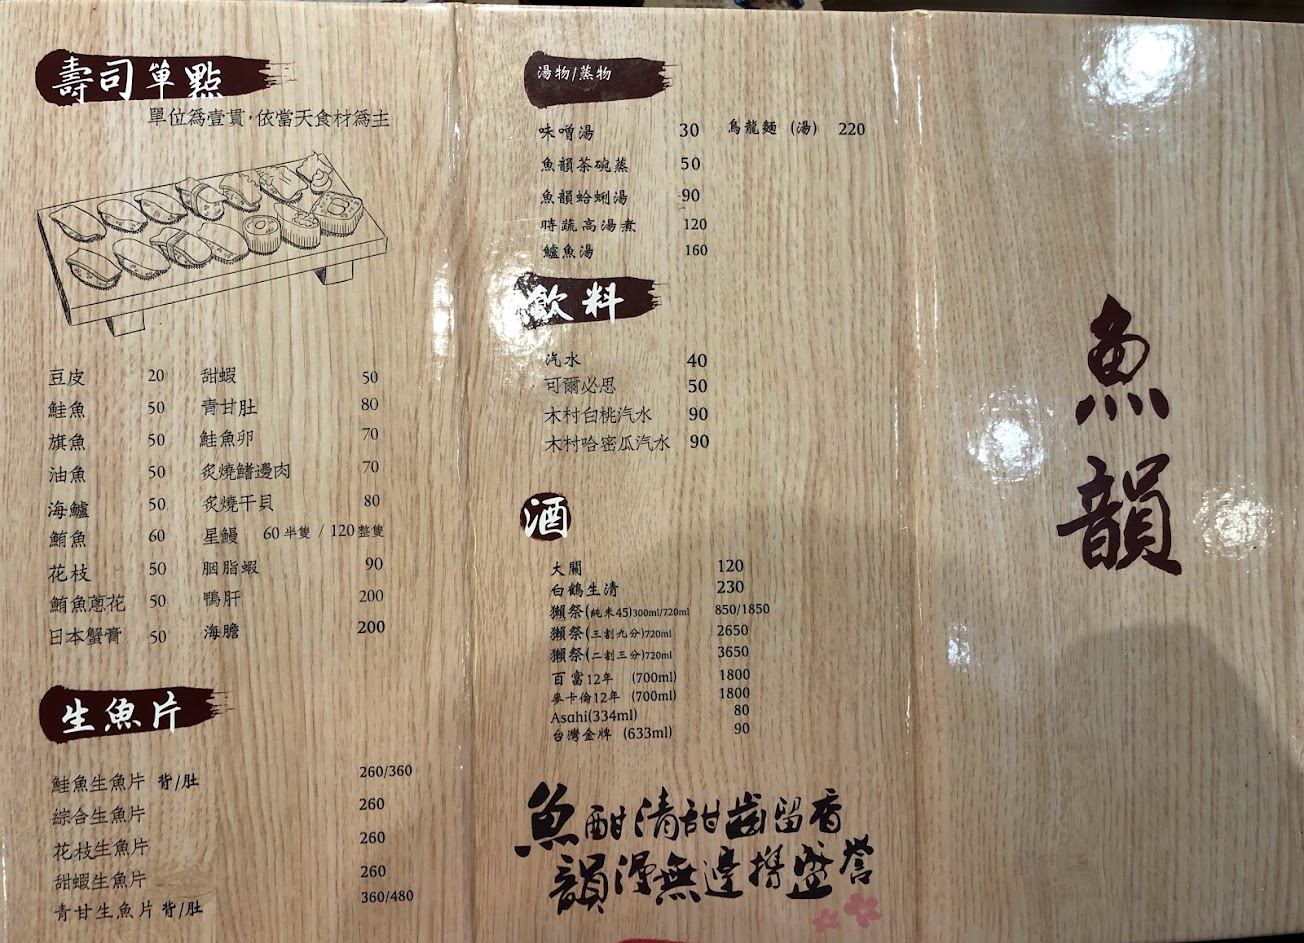 壽司單點
單位為壹貫，依當天食材為主
豆皮 20
鮭魚 50
旗魚 50
油魚 50
海鱸 50
鮪魚 60
花枝 50
鮪魚蔥花 50
日本蟹膏 50
甜蝦 50
青甘肚 80
鮭魚卵 70
炙燒鰭邊肉 70
炙燒干貝 80
星鰻 60半隻 / 120整隻
胭脂蝦 90
鴨肝 200
海膽 200
生魚片
鮭魚生魚片 背/肚 260/360
綜合生魚片 260
花枝生魚片 260
甜蝦生魚片 260
青甘生魚片 背/肚 360/480
湯物/蒸物
味噌湯 30
魚韻茶碗蒸 50
魚韻蛤蜊湯 90
時蔬高湯煮 120
鱸魚湯 160
烏龍麵 (湯) 220
飲料
汽水 40
可爾必思 50
木村白桃汽水 90
木村哈密瓜汽水 90
酒
大關 120
白鶴生清 230
獺祭(純米45)300ml/720ml 850/1850
獺祭(三割九分)720ml 2650
獺祭(二割三分)720ml 3650
百富12年 (700ml) 1800
麥卡倫12年 (700ml) 1800
Asahi(334ml) 80
台灣金牌 (633ml) 90
魚酣清甜齒留香
韻漫無邊攜盛譽
魚韻